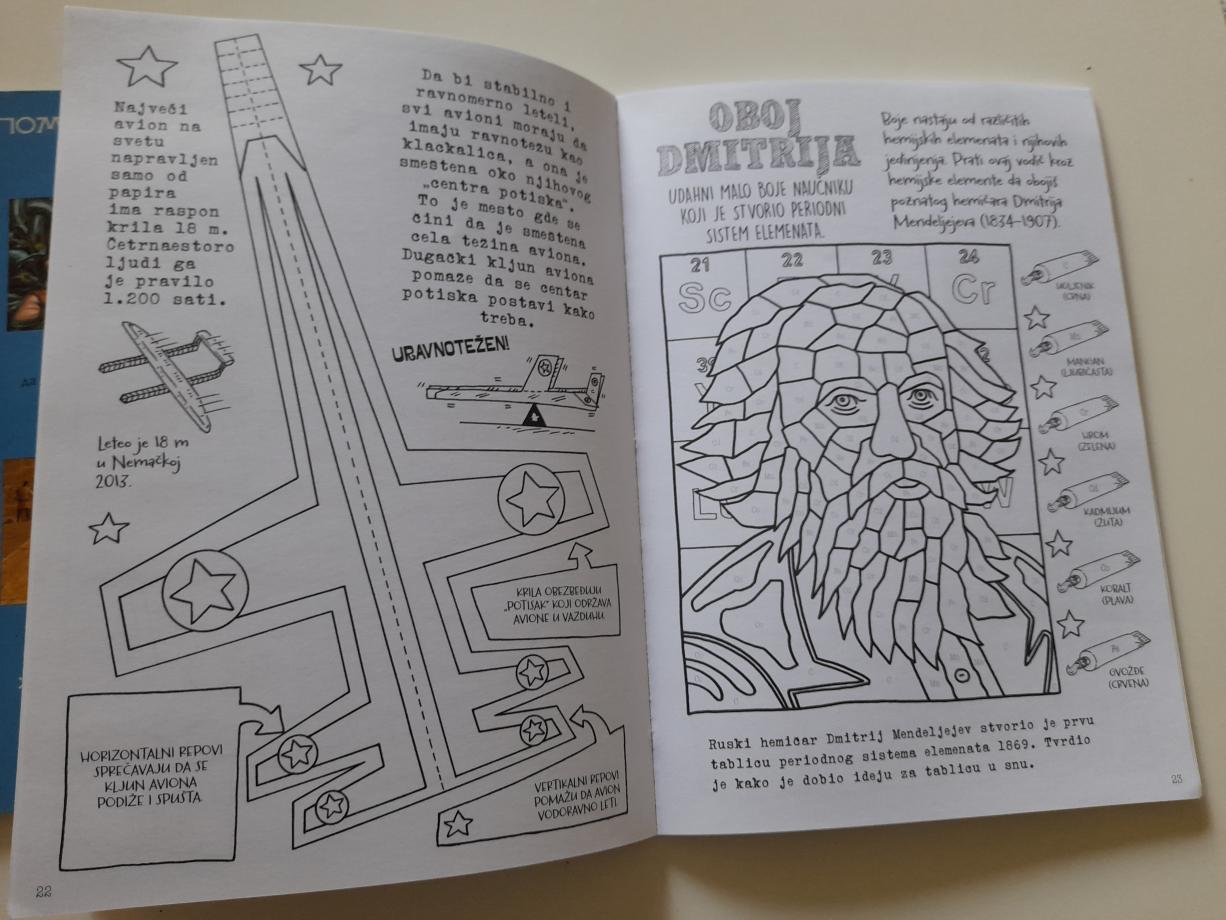 Najveći
avion na
svetu
napravljen
samo od
papira
ima raspon
krila 18 m.
Četrnaestoro
ljudi ga
je pravilo
1.200 sati.
Leteo je 18 m
u Nemačkoj
2013.
Da bi stabilno i
ravnomerno leteli,
svi avioni moraju da
imaju ravnotežu kao
klackalica, a ona je
smeštena oko njihovog
„centra potiska“.
To je mesto gde se
čini da je smeštena
cela težina aviona.
Dugački kljun aviona
pomaže da se centar
potiska postavi kako
treba.
URAVNOTEŽEN!
KRILA OBEZBEĐUJU
„POTISAK“ KOJI ODRŽAVA
AVIONE U VAZDUHU.
HORIZONTALNI REPOVI
SPREČAVAJU DA SE
KLJUN AVIONA
PODIŽE I SPUŠTA.
VERTIKALNI REPOVI
POMAŽU DA AVION
VODORAVNO LETI.
22
OBOJ
DMITRIJA
UDAHNI MALO BOJE NAUČNIKU
KOJI JE STVORIO PERIODNI
SISTEM ELEMENATA.
Boje nastaju od različitih
hemijskih elemenata i njihovih
jedinjenja. Prati ovaj vodič kroz
hemijske elemente da obojiš
poznatog hemičara Dmitrija
Mendeljejeva (1834–1907).
21
22
23
24
Sc
Cr
C
UGLJENIK
(CRNA)
Mn
MANGAN
(LJUBIČASTA)
Cr
HROM
(ZELENA)
Cd
KADMIJUM
(ŽUTA)
Co
KOBALT
(PLAVA)
Fe
GVOŽĐE
(CRVENA)
Ruski hemičar Dmitrij Mendeljejev stvorio je prvu
tablicu periodnog sistema elemenata 1869. Tvrdio
je kako je dobio ideju za tablicu u snu.
23